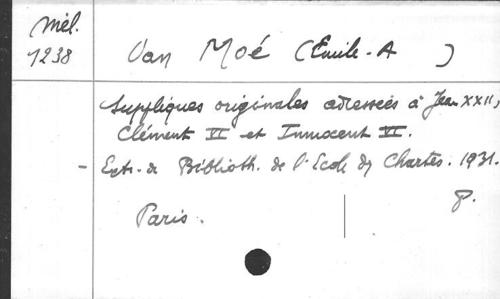 Mél.
1238
Van Moé (Emile-A )
Suppliques originales adressées à Jean XXII,
Clément VI et Innocent VI.
- Extr. de Biblioth. de l'Ecole des Chartes. 1931.
Paris. 8.